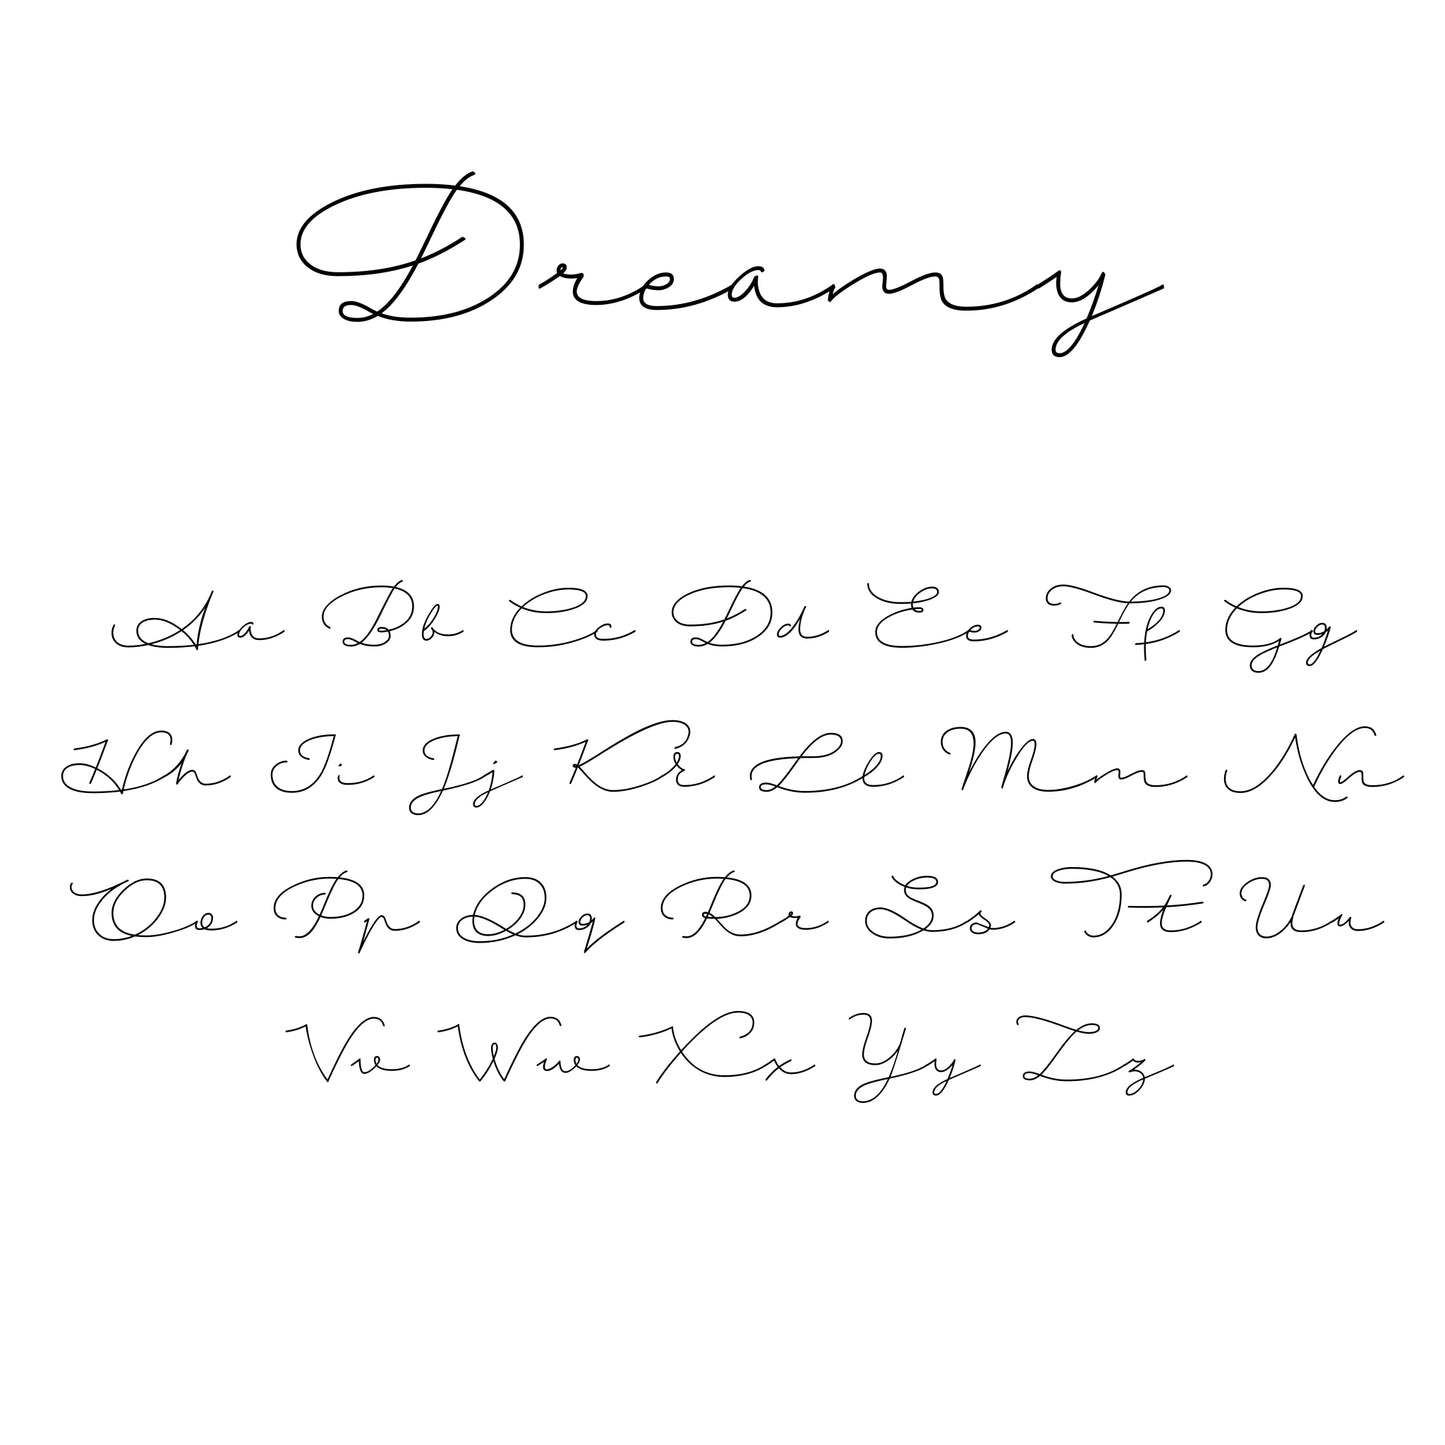 Dreamy
Aa Bb Cc Dd Ee Ff Gg
Hh Ii Jj Kk Ll Mm Nn
Oo Pp Qq Rr Ss Tt Uu
Vv Ww Xx Yy Zz